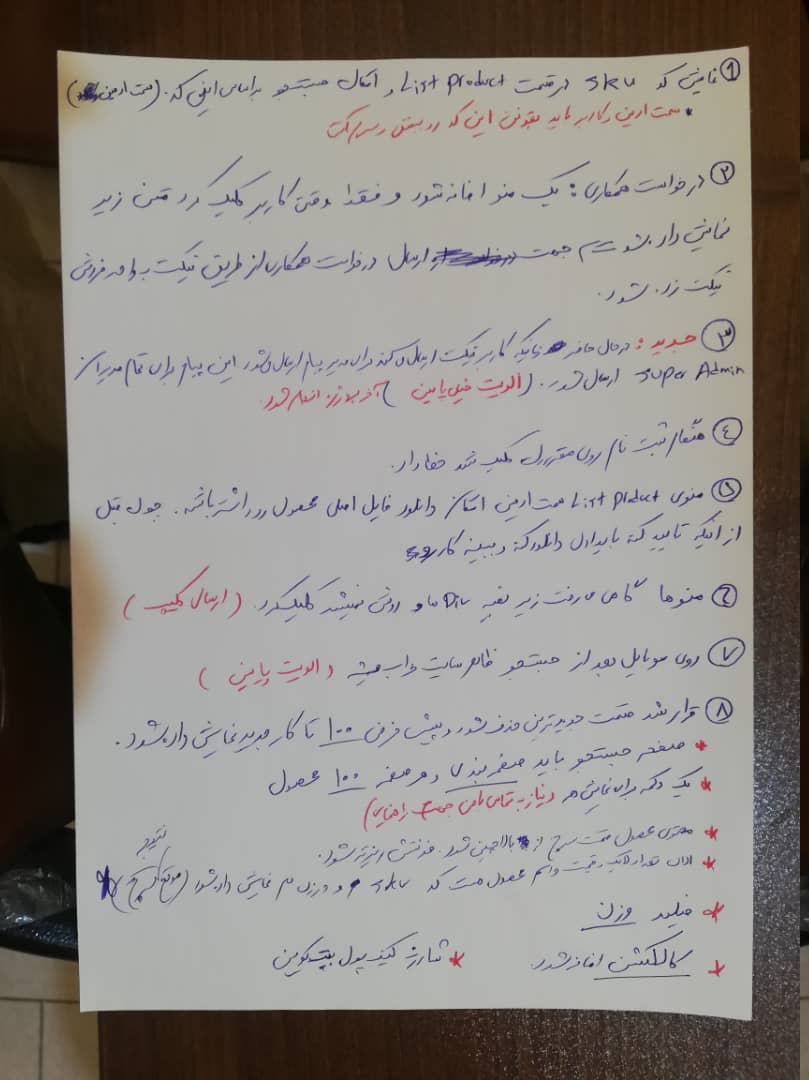 ① نمایش کد sku در قسمت List Product و امکان جستجو براساس این کد. (سمت ادمین)
* سمت ادمین و کاربر باید بتونن این کد رو
② درخواست همکاری : یک منو اضافه شود و فقط وقتی کاربر کلیک کرد متن زیر
نمایش داده بشود جهت ارسال درخواست همکاری از طریق تیکت به واحد فروش
تیکت زده شود.
③ جدید : در حال حاضر زمانیکه کاربر تیکت ارسال می‌کند برای مدیر پیام ارسال میشود این پیام برای تمام مدیران
super Admin ارسال شود. (الویت خیلی پایین) آخر پروژه انجام شود.
④ هنگام ثبت نام روی مقررات کلیک شد خطا دارد.
⑤ منوی List Product سمت ادمین امکان دانلود فایل اصلی محصول رو داشته باشه. چون قبل
از اینکه تایید کنه باید اول دانلود کنه و ببینه کار رو
⑥ منوها گاهی می رفت زیر بقیه Div ها و روش نمیشد کلیک کرد. (ارسال کلیپ)
⑦ روی موبایل بعد از جستجو ظاهر سایت خراب میشه (الویت پایین)
⑧ قرار شد قسمت جدیدترین حذف شود و پیش فرض ۱۰۰ تا کار جدید نمایش داده شود.
* صفحه جستجو باید صفحه بندی و هر صفحه ۱۰۰ محصول
* یک دکمه برای نمایش (نیاز به تماس تلفنی جهت راهنمایی)
* محتوی محصول قسمت سرچ از بالا چین شود. فونتش ریزتر شود.
* الان تعداد لایک و قیمت و اسم محصول هست کد sku و وزن هم نمایش داده بشود (موقع سرچ) نتیجه
* فیلد وزن
* کالکشن اضافه شود.
* شارژ کیف پول بیت کوین